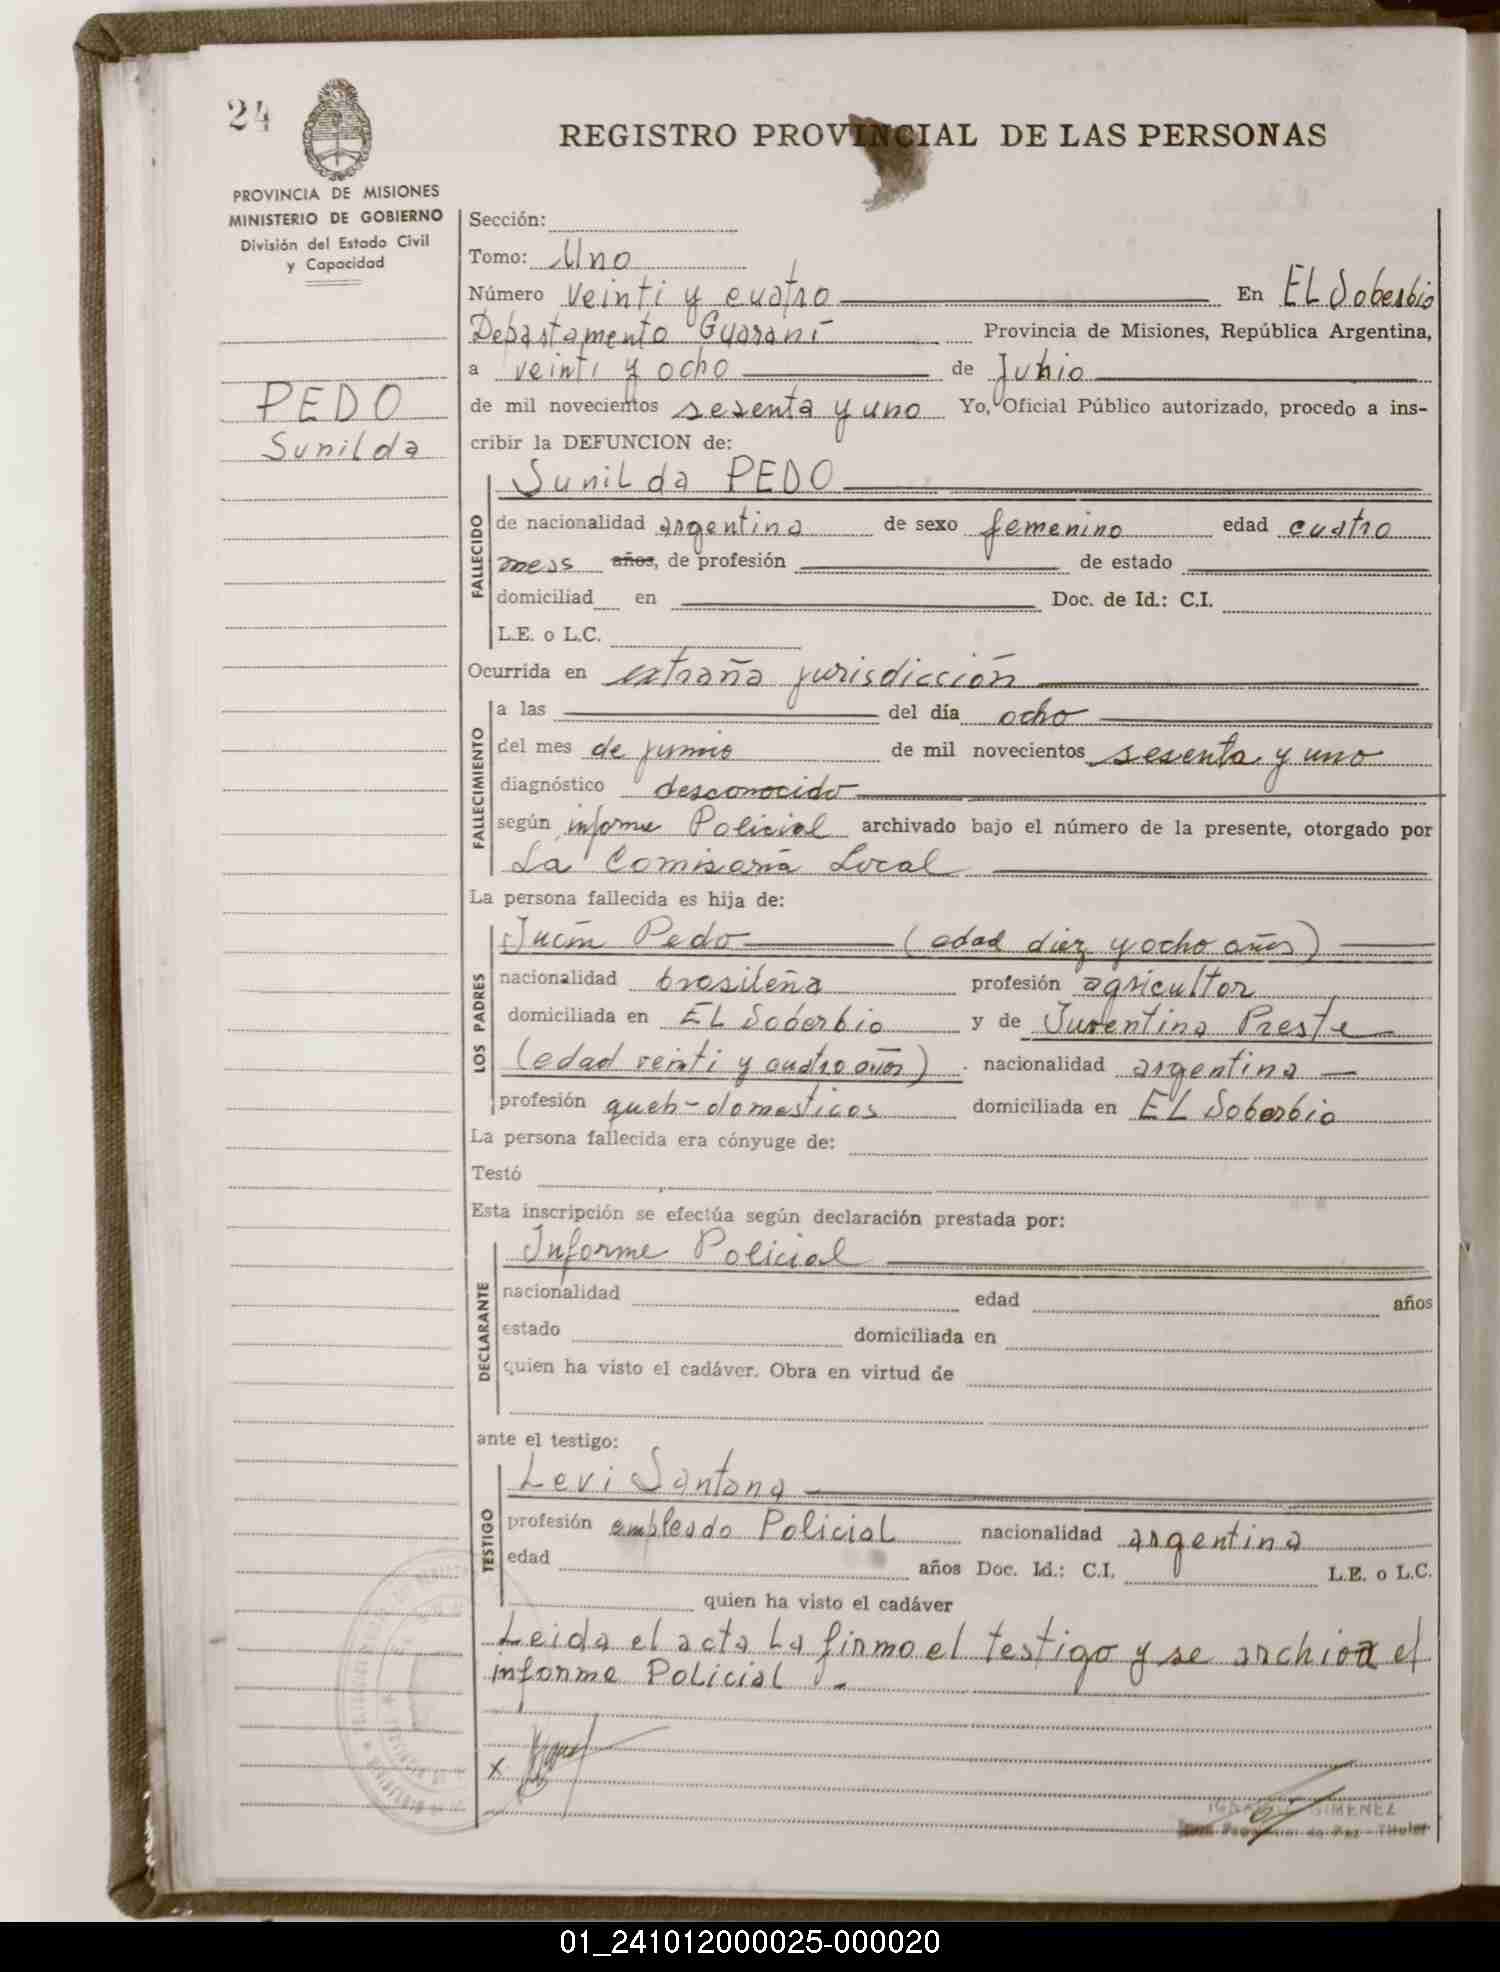 24
REGISTRO PROVINCIAL DE LAS PERSONAS
PROVINCIA DE MISIONES
MINISTERIO DE GOBIERNO
División del Estado Civil
y Capacidad
PEDO
Sunilda
Sección:
Tomo: Uno
Número veinti y cuatro En EL Soberbio
Departamento Guaraní Provincia de Misiones, República Argentina,
a veinti y ocho de Junio
de mil novecientos sesenta y uno Yo, Oficial Público autorizado, procedo a ins-
cribir la DEFUNCION de:
FALLECIDO
Sunilda PEDO
de nacionalidad argentina de sexo femenino edad cuatro
mess años, de profesión de estado
domiciliad en Doc. de Id.: C.I.
L.E. o L.C.
Ocurrida en extraña jurisdicción
FALLECIMIENTO
a las del día ocho
del mes de junio de mil novecientos sesenta y uno
diagnóstico desconocido
según informe Policial archivado bajo el número de la presente, otorgado por
La Comisaría Local
La persona fallecida es hija de:
LOS PADRES
Juan Pedo (edad diez y ocho años)
nacionalidad brasileña profesión agricultor
domiciliada en EL Soberbio y de Juventina Preste
(edad veinti y cuatro años). nacionalidad argentina
profesión queh-domesticos domiciliada en EL Soberbio
La persona fallecida era cónyuge de:
Testó
Esta inscripción se efectúa según declaración prestada por:
DECLARANTE
Informe Policial
nacionalidad edad años
estado domiciliada en
quien ha visto el cadáver. Obra en virtud de
ante el testigo:
TESTIGO
Levi Santana
profesión empleado Policial nacionalidad argentina
edad años Doc. Id.: C.I. L.E. o L.C.
quien ha visto el cadáver
Leida el acta la firmo el testigo y se archiva el
informe Policial .-
x
GIMENEZ
de Paz - Titular
01_241012000025-000020